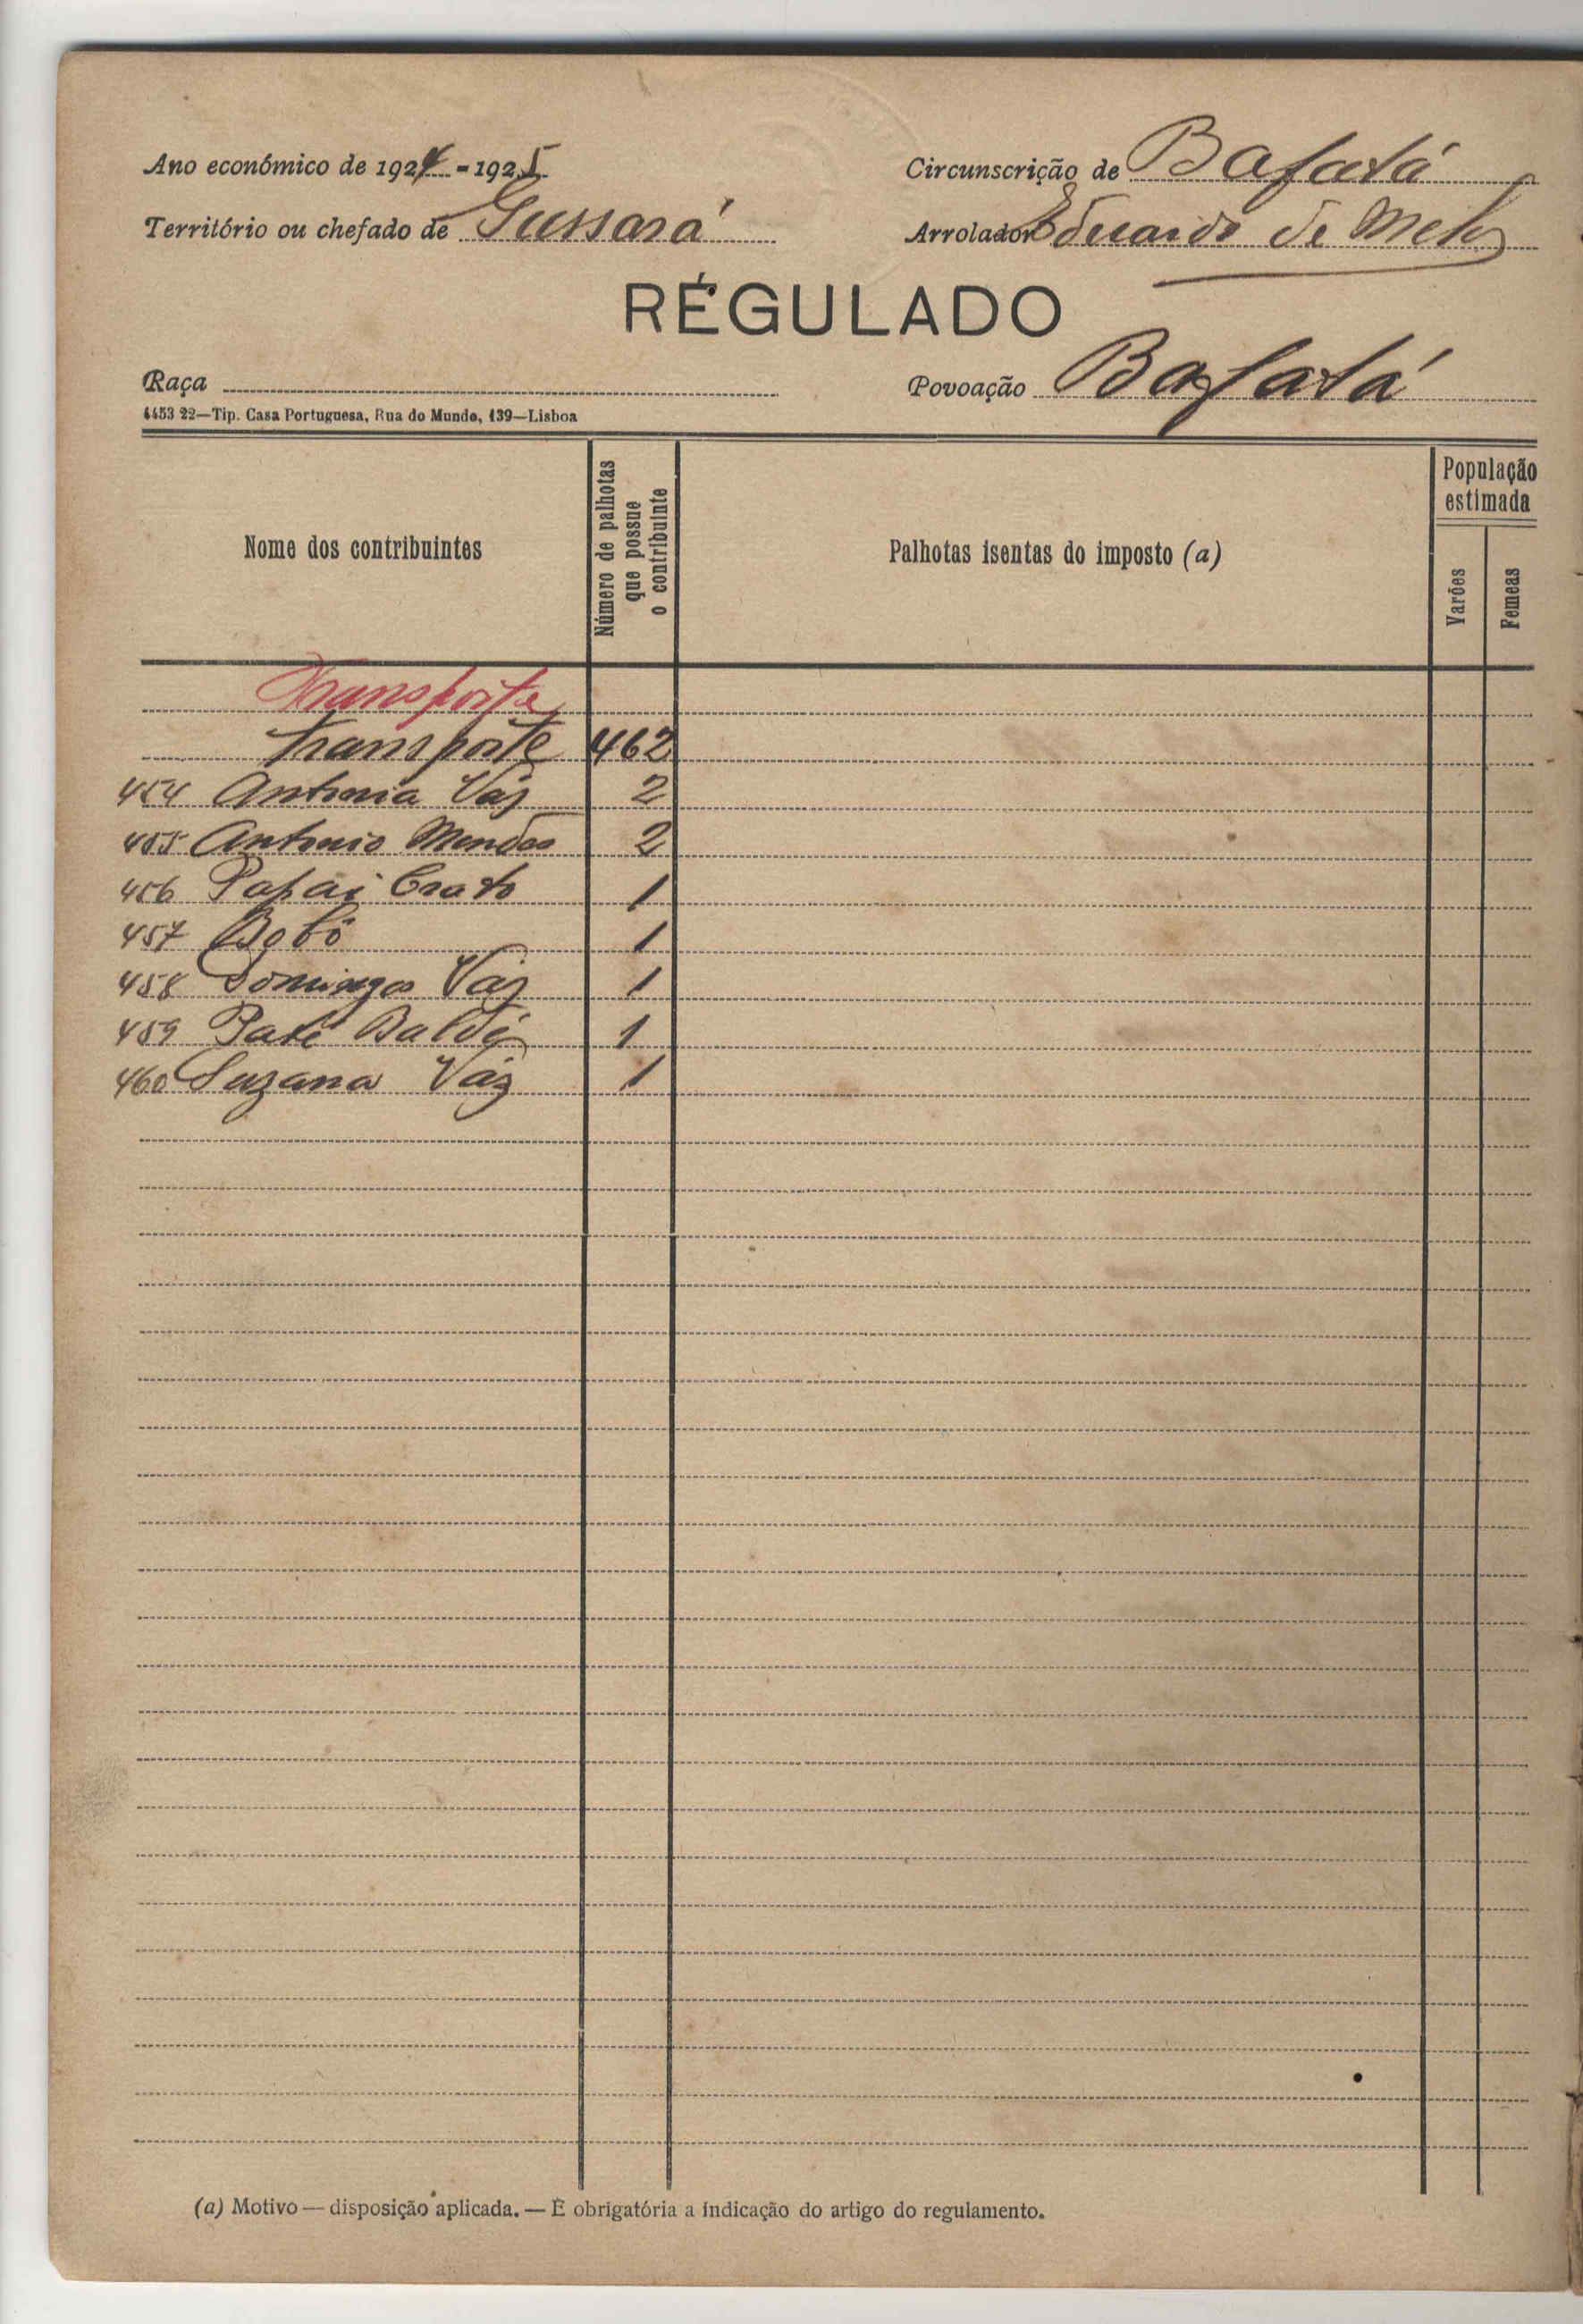 Ano económico de 1924-1925
Circunscrição de Bafatá
Território ou chefado de Gussará
Arrolador Eduardo de Melo
RÉGULADO
Raça
Povoação Bafatá
4453 22—Tip. Casa Portuguesa, Rua do Mundo, 139—Lisboa
Nome dos contribuintes
Número de palhotas
que possue
o contribuinte
Palhotas isentas do imposto (a)
População
estimada
Varões
Femeas
Transporte
Transporte 462
454 Antonia Váz 2
455 Antonio Mendes 2
456 Papai Crato 1
457 Bobô 1
458 Domingos Váz 1
459 Paté Baldé 1
460 Suzana Váz 1
(a) Motivo — disposição aplicada. — É obrigatória a indicação do artigo do regulamento.